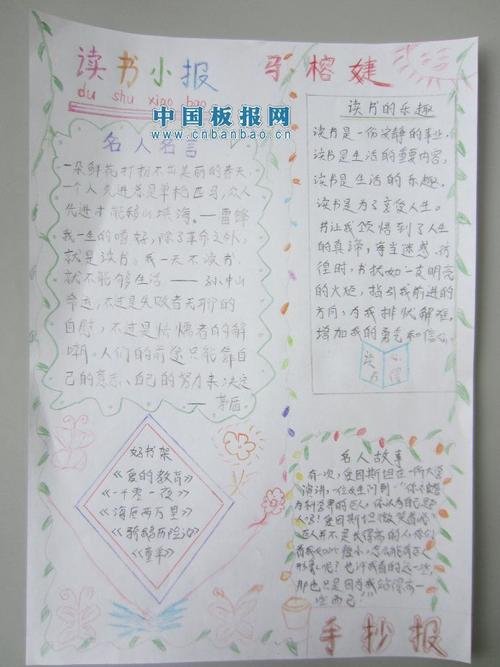 读书小报
马榕婕
du shu xiao bao
中国板报网
www.cnbanbao.cn
名人名言
一朵鲜花打扮不出美丽的春天,
一个人先进总是单枪匹马,众人
先进才能移山填海。——雷锋
我一生的嗜好,除了革命之外,
就是读书。我一天不读书,
就不能够生活——孙中山
命运,不过是失败者无聊的
自慰,不过是怯懦者的解
嘲。人们的前途只能靠自
己的意志、自己的努力来决定
——茅盾
读书的乐趣
读书是一份安静的事业。
读书是生活的重要内容,
读书是生活的乐趣。
读书是为了享受人生。
书让我领悟到了人生
的真谛,每当迷惑、彷
徨时,书犹如一支明亮
的火炬,指引我前进的
方向,为我排忧解难,
增加我的勇气和信心。
读书
好书架
《爱的教育》
《一千零一夜》
《海底两万里》
《骑鹅历险记》
《童年》
名人故事
有一次,爱因斯坦在一所大学
演讲,
爱因斯坦微笑着
那也只是因为我站得高一
些而已!"
手抄报